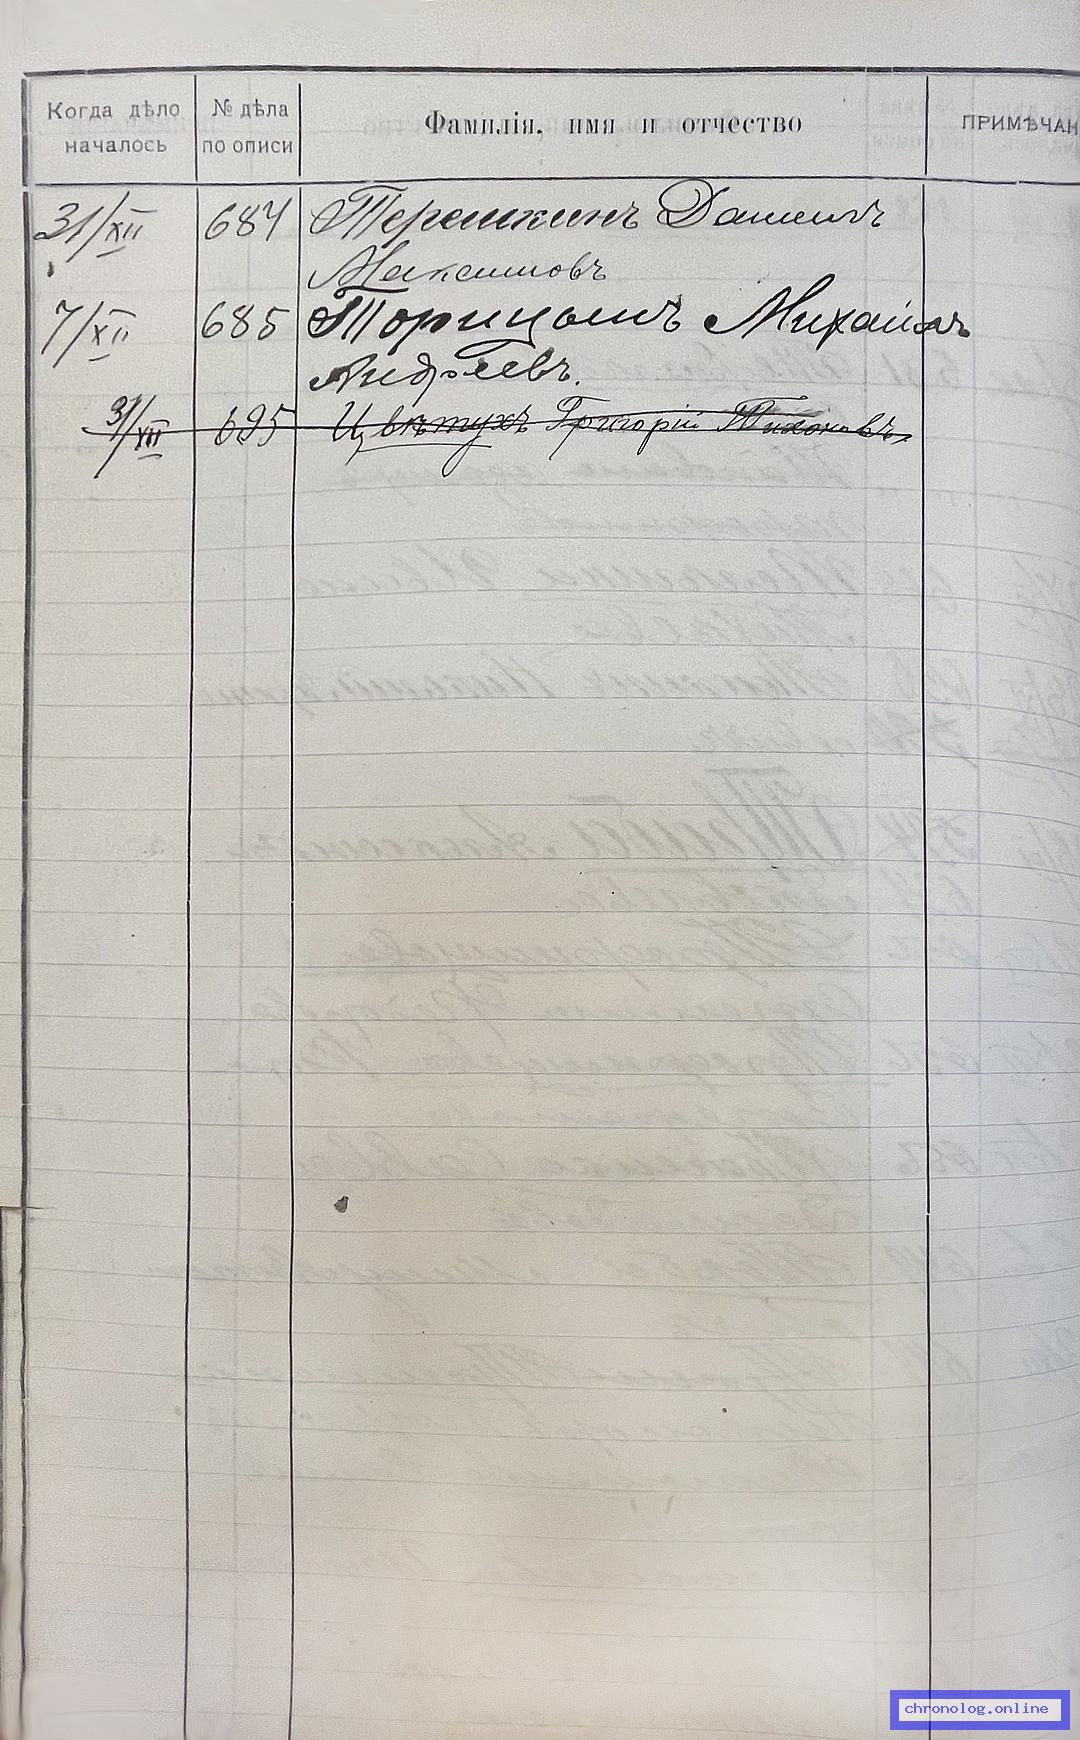 Когда дѣло началось
№ дѣла по описи
Фамилія, имя и отчество
ПРИМѢЧАН
31/XII 684 Терешкинъ Даніилъ
Максимовъ
7/XII 685 Торицынъ Михаилъ
Андреевъ.
31/XII 695 Цвѣтухъ Григорій Тихоновъ
chronolog.online